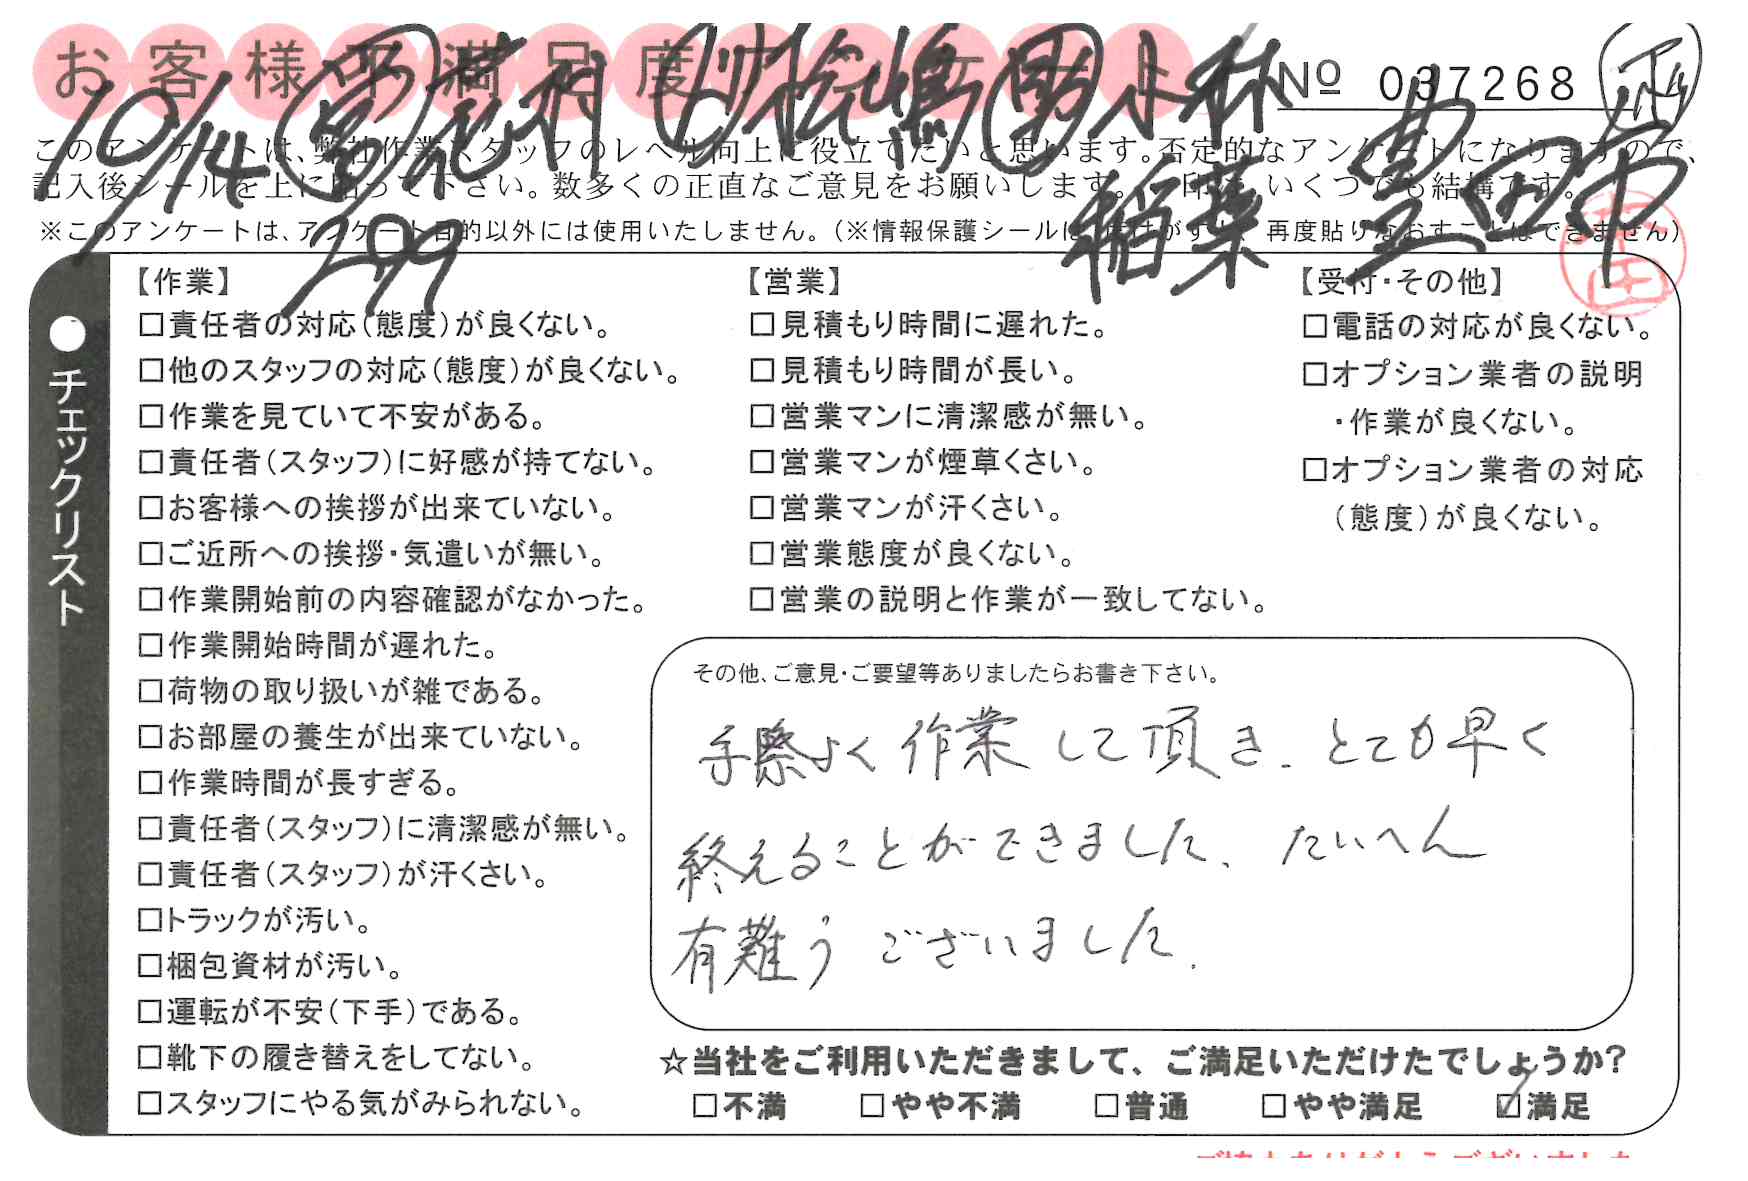 お客様不満足度アンケート
№ 037268
10/14
299
小林
稲葉
このアンケートは、弊社作業スタッフのレベル向上に役立てたいと思います。否定的なアンケートになりますので、
記入後シールを上に貼って下さい。数多くの正直なご意見をお願いします。 印は、いくつでも結構です。
※このアンケートは、アンケート目的以外には使用いたしません。(※情報保護シールは、はがすと、再度貼りなおすことはできません)
●チェックリスト
【作業】
□責任者の対応(態度)が良くない。
□他のスタッフの対応(態度)が良くない。
□作業を見ていて不安がある。
□責任者(スタッフ)に好感が持てない。
□お客様への挨拶が出来ていない。
□ご近所への挨拶・気遣いが無い。
□作業開始前の内容確認がなかった。
□作業開始時間が遅れた。
□荷物の取り扱いが雑である。
□お部屋の養生が出来ていない。
□作業時間が長すぎる。
□責任者(スタッフ)に清潔感が無い。
□責任者(スタッフ)が汗くさい。
□トラックが汚い。
□梱包資材が汚い。
□運転が不安(下手)である。
□靴下の履き替えをしてない。
□スタッフにやる気がみられない。
【営業】
□見積もり時間に遅れた。
□見積もり時間が長い。
□営業マンに清潔感が無い。
□営業マンが煙草くさい。
□営業マンが汗くさい。
□営業態度が良くない。
□営業の説明と作業が一致してない。
【受付・その他】
□電話の対応が良くない。
□オプション業者の説明
・作業が良くない。
□オプション業者の対応
(態度)が良くない。
その他、ご意見・ご要望等ありましたらお書き下さい。
手際よく作業して頂き、とても早く
終えることができました、たいへん
有難うございました。
☆当社をご利用いただきまして、ご満足いただけたでしょうか?
□不満 □やや不満 □普通 □やや満足 ☑満足